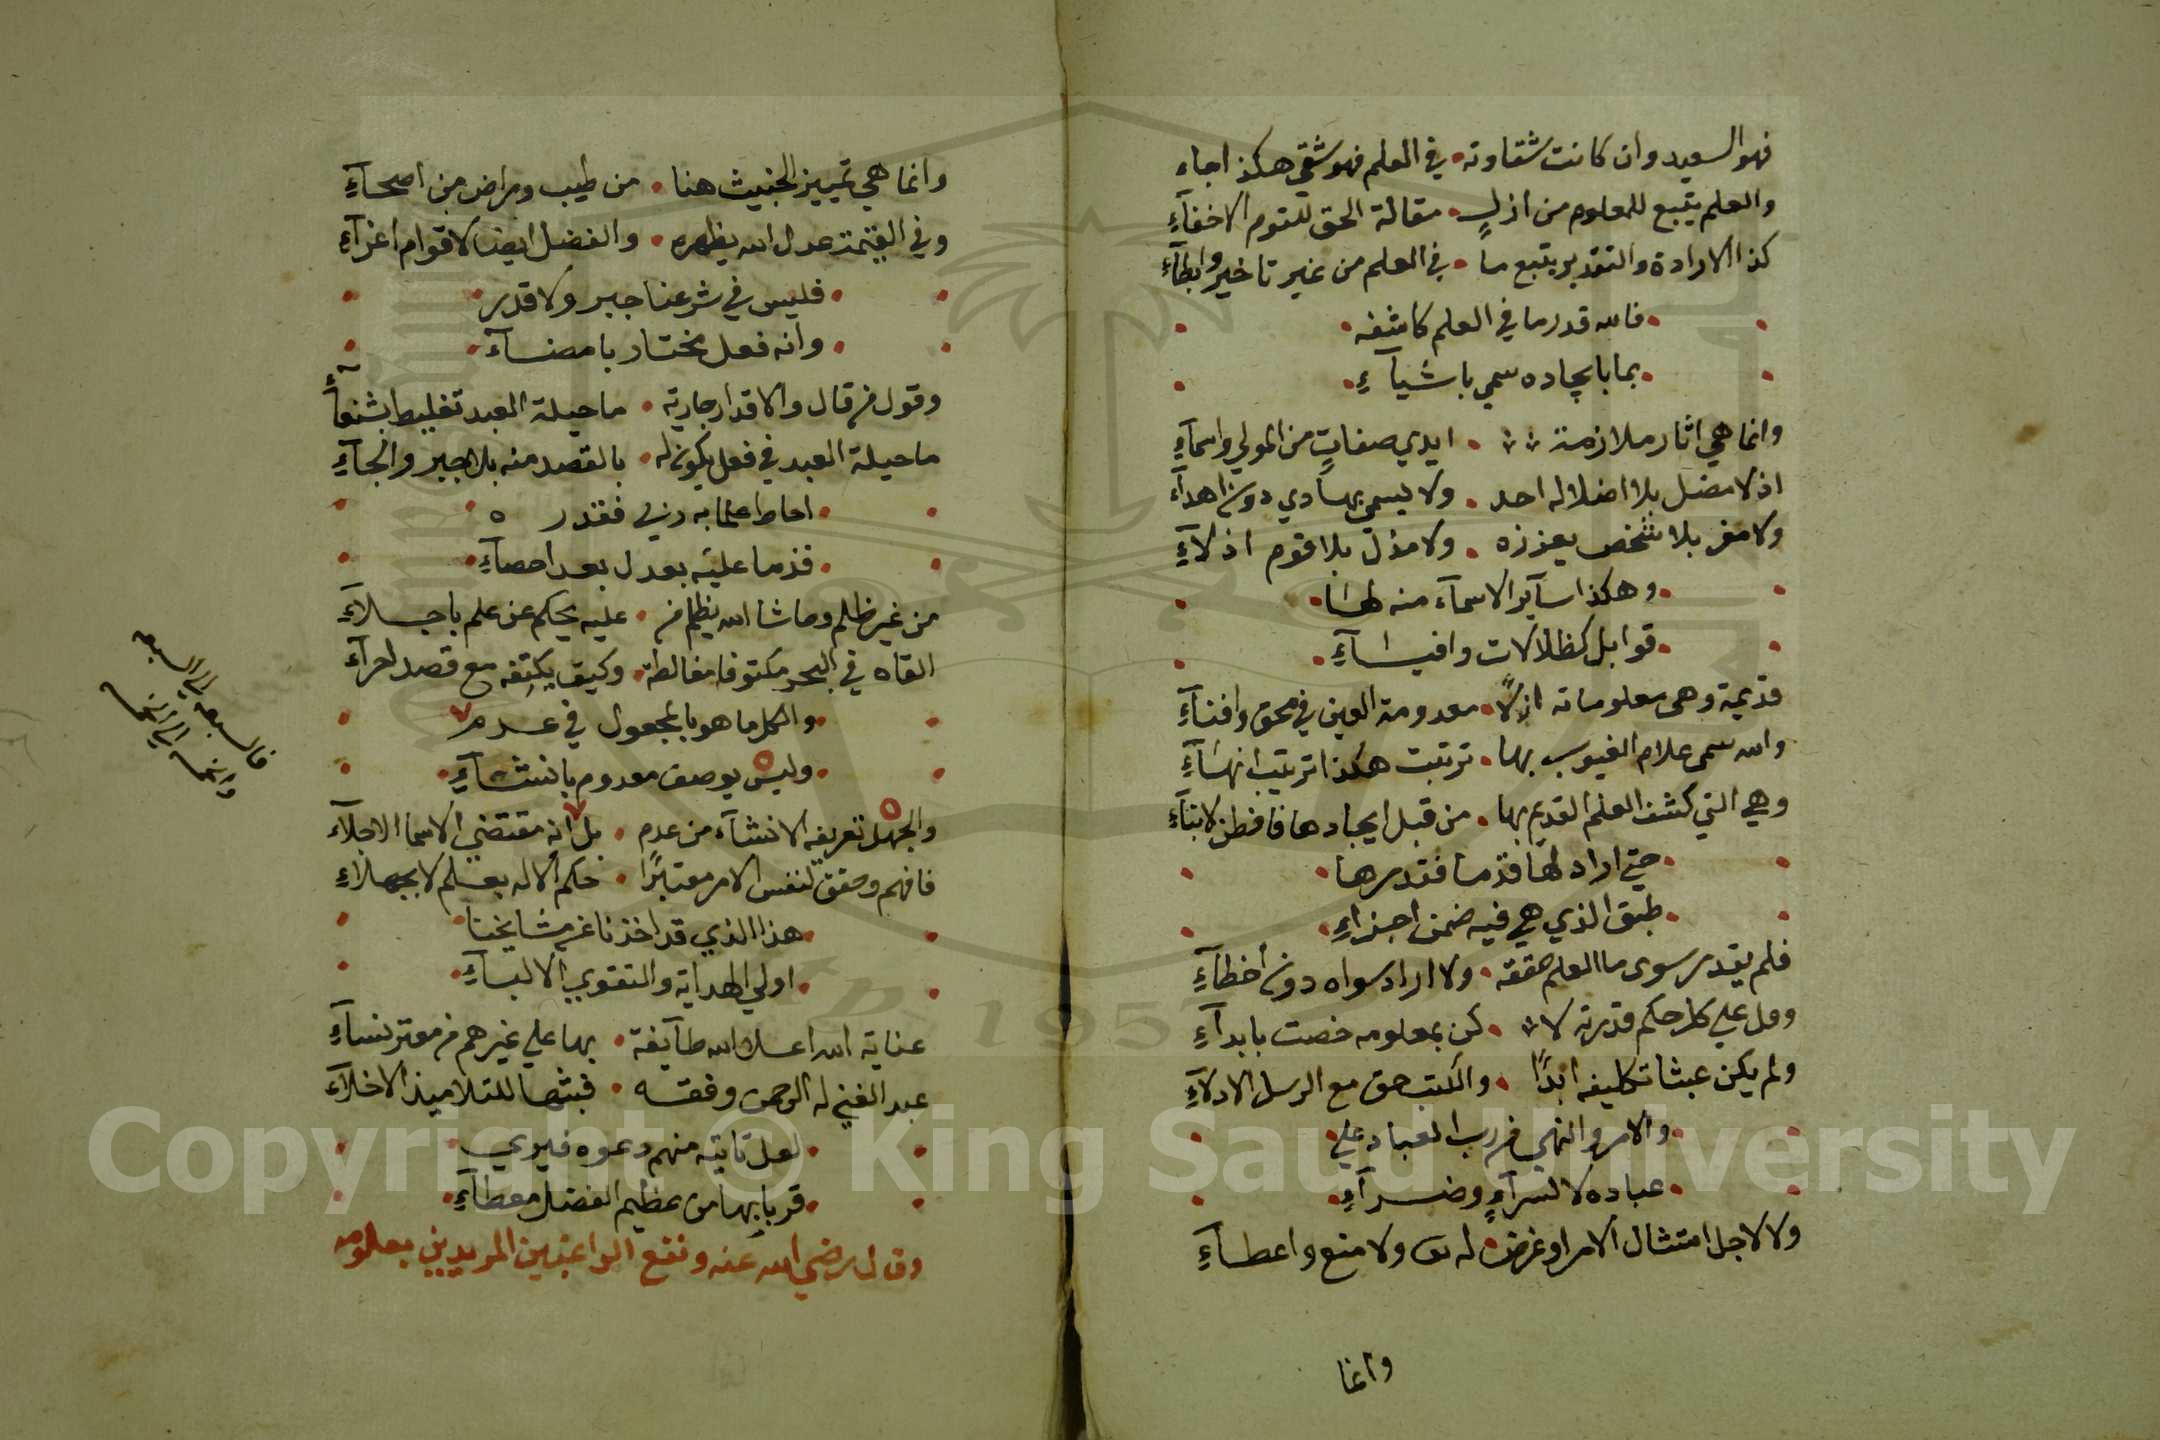 فهو السعيد وان كانت شقاوته • في العلم فهو شقي هكذا جاء
والعلم يتبع للمعلوم من ازلٍ • مقالة الحق للقوم الاخفآءِ
كذا الارادة والتقدير يتبع ما • في العلم من غير تاخير وابطآءِ
• فالله قدر ما في العلم كاشفه •
• بما بايجاده سمي باشيآءِ •
وانما هي اثار ملازمة • ايدي صفاتٍ من المولي واسمآءِ
اذ لا مضل بلا اضلاله احد • ولا يسمى بهادي دون اهدآء
ولا معز بلا شخص يعززه • ولا مذل بلا قوم اذلآءِ
• وهكذا سآير الاسمآء منه لها •
• قوابل كظلالات وافيآءِ •
قديمة وهى معلوماته ازلًا • معدومة العين في محق وافنآءِ
والله سمى علام الغيوب بها • ترتبت هكذا ترتيب انهآءِ
وهي التي كشف العلم القديم بها • من قبل ايجادها فافطن لابنآءِ
• حتي اراد لها قدما فقدرها •
• طبق الذي هي فيه ضمن اجزاءِ •
فلم يقدر سوى ما العلم حققه • ولا اراد سواه دون أخطآءِ
ودل علي كل حكم قدرته لا • كن بمعلومه خصت بابدآءِ
ولم يكن عبثا تكليفه ابدًا • والكتب حق مع الرسل الادلآءِ
• والامر والنهي من رب العباد علي •
• عباده لا لسرآءٍ وضرآءِ •
ولا لاجل امتثال الامر او غرض • له ولا منع واعطآءِ
وانما
وانما هي تمييز الخبيث هنا • من طيب ومراض من اصحآءِ
وفي القيٰمة عدل الله يظهره • والفضل ايضا لاقوام اعزآءِ
• فليس في شرعنا جبر ولا قدر •
• وانه فعل مختار بامضآءِ •
وقول من قال والاقدار جارية • ما حيلة العبد تغليط بشنعآءِ
ما حيلة العبد في فعل يكون له • بالقصد منه بلا جبر والجآءِ
• احاط علما به ربي فقدر ه •
• قدما عليه بعدل بعد احصآءِ •
من غير ظلم وحاشا الله يظلم من • عليه يحكم عن علم باجلآءِ
القاه في البحر مكتوفا مغالطة • وكيف يكتفه مع قصد اجرآء
• والكل ما هو بالمجعول في عدم •
• وليس يوصف معدوم بانشآءِ •
والجهل تعريفه الانشآء من عدم • بل انه مقتضي الاسما الاجلآء
فافهم وحقق لنفس الامر معتبرًا • حكم الاله بعلم لا بجهلآءِ
• هذا الذي قد اخذنا عن مشايخنا •
• اولي الهداية والتقوي الالبآءِ •
عناية الله اعلا الله طآيفة • بها علي غيرهم من معتز نسآءِ
عبد الغني له الرحمن وفقه • فبثها للتلاميذ الاخلآء
• لعل تاتيه منهم دعوة فيري •
• قربا بها من عظيم الفضل معطآءِ •
وقال رضي الله عنه ونفع الراغبين المريدين بعلومه
Copyright © King Saud University
1957